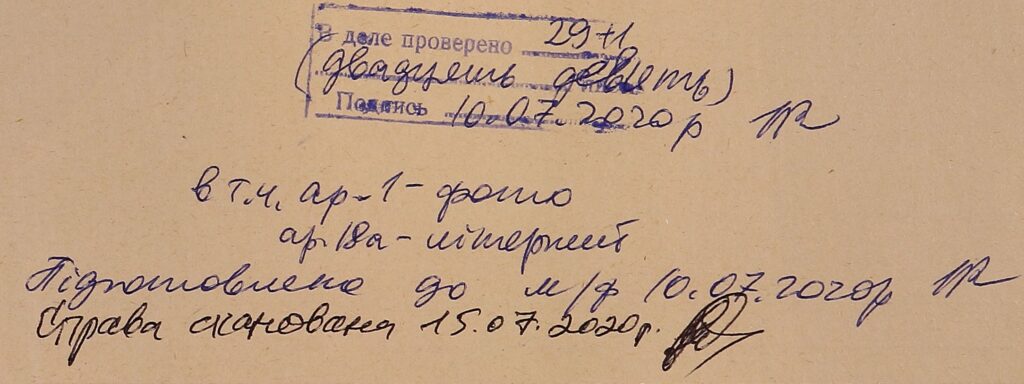 В деле проверено 29+1
(двадцять девять)
Подпись 10.07.2020р
в т.ч. ар.1 - фото
ар.18а - літерний
Підготовлено до м/ф 10.07.2020р
Справа сканована 15.07.2020р.